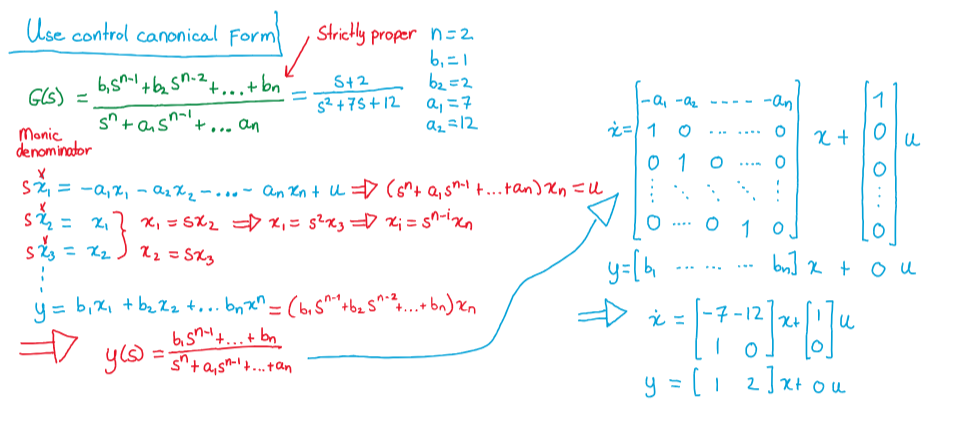 Use control canonical Form
Strictly proper
n=2
b₁=1
b₂=2
a₁=7
a₂=12
G(s) = (b₁sⁿ⁻¹+b₂sⁿ⁻²+...+bn)/(sⁿ+a₁sⁿ⁻¹+... an) = (s+2)/(s²+7s+12)
Monic
denominator
sx₁ = -a₁x₁ - a₂x₂ - ... - anxn + u ⇒ (sⁿ+a₁sⁿ⁻¹+...+an)xn = u
sx₂ = x₁ } x₁ = sx₂ ⇒ x₁ = s²x₃ ⇒ xᵢ = sⁿ⁻ⁱxn
sx₃ = x₂ } x₂ = sx₃
⋮
y = b₁x₁ + b₂x₂ +... bnxⁿ = (b₁sⁿ⁻¹+b₂sⁿ⁻²+...+bn)xn
⇒ y(s) = (b₁sⁿ⁻¹+...+bn)/(sⁿ+a₁sⁿ⁻¹+...+an)
ẋ = [-a₁ -a₂ ---- -an
1 0 ... .... 0
0 1 0 .... 0
⋮ ⋱ ⋱ ⋱ ⋮
0 .... 0 1 0] x + [1 0 0 ⋮ 0] u
y=[b₁ ... ... ... bn] x + 0 u
⇒ ẋ = [-7 -12
1 0] x+ [1 0] u
y = [1 2] x+ 0 u